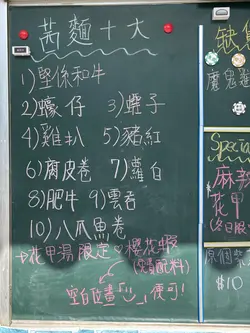 茜麵十大
1)堅係和牛
2)蠔仔 3)蟶子
4)雞扒 5)豬紅
6)腐皮卷 7)蘿白
8)肥牛 9)雲吞
10)八爪魚卷
花甲湯限定♡櫻花蝦
(隨書配料)
空白位畫「‿」便可!
缺貨
魔鬼雞
Special
麻辣
花甲
(冬日限
$10